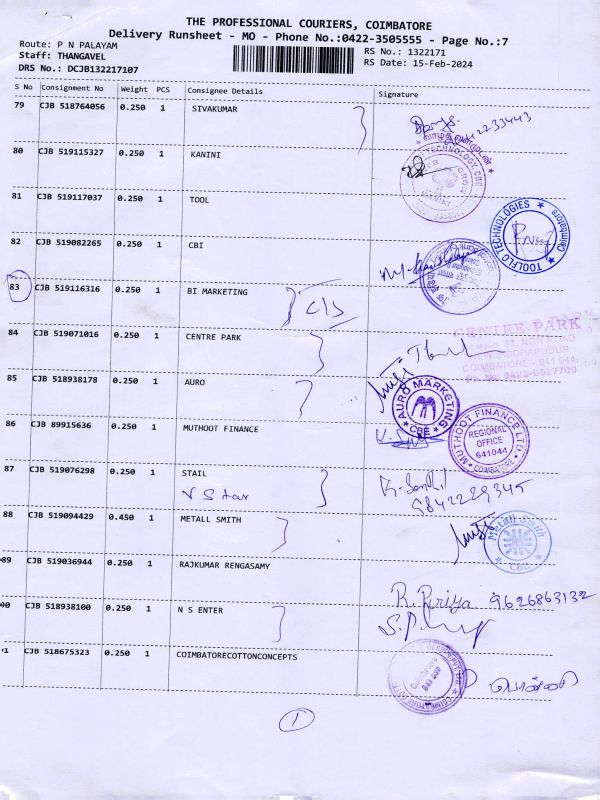 THE PROFESSIONAL COURIERS, COIMBATORE
Delivery Runsheet - MO - Phone No.:0422-3505555 - Page No.:7
Route: P N PALAYAM
RS No.: 1322171
Staff: THANGAVEL
RS Date: 15-Feb-2024
DRS No.: DCJB132217107
S No Consignment No Weight PCS Consignee Details Signature
79 CJB 518764056 0.250 1 SIVAKUMAR
80 CJB 519115327 0.250 1 KANINI
81 CJB 519117037 0.250 1 TOOL
TOOLFLO TECHNOLOGIES Coimbatore
82 CJB 519082265 0.250 1 CBI
83 CJB 519116316 0.250 1 BI MARKETING
84 CJB 519071016 0.250 1 CENTRE PARK
CENTRE PARK
COIMBATORE - 641 044
85 CJB 518938178 0.250 1 AURO
AURO MARKETING CBE
86 CJB 89915636 0.250 1 MUTHOOT FINANCE
MUTHOOT FINANCE LTD REGIONAL OFFICE 641044 COIMBATORE
87 CJB 519076298 0.250 1 STAIL
K. Senthil
9842229345
88 CJB 519094429 0.450 1 METALL SMITH
Metall Smith CBE
89 CJB 519036944 0.250 1 RAJKUMAR RENGASAMY
R. Priya 9626863132
90 CJB 518938100 0.250 1 N S ENTER
91 CJB 518675323 0.250 1 COIMBATORECOTTONCONCEPTS
1